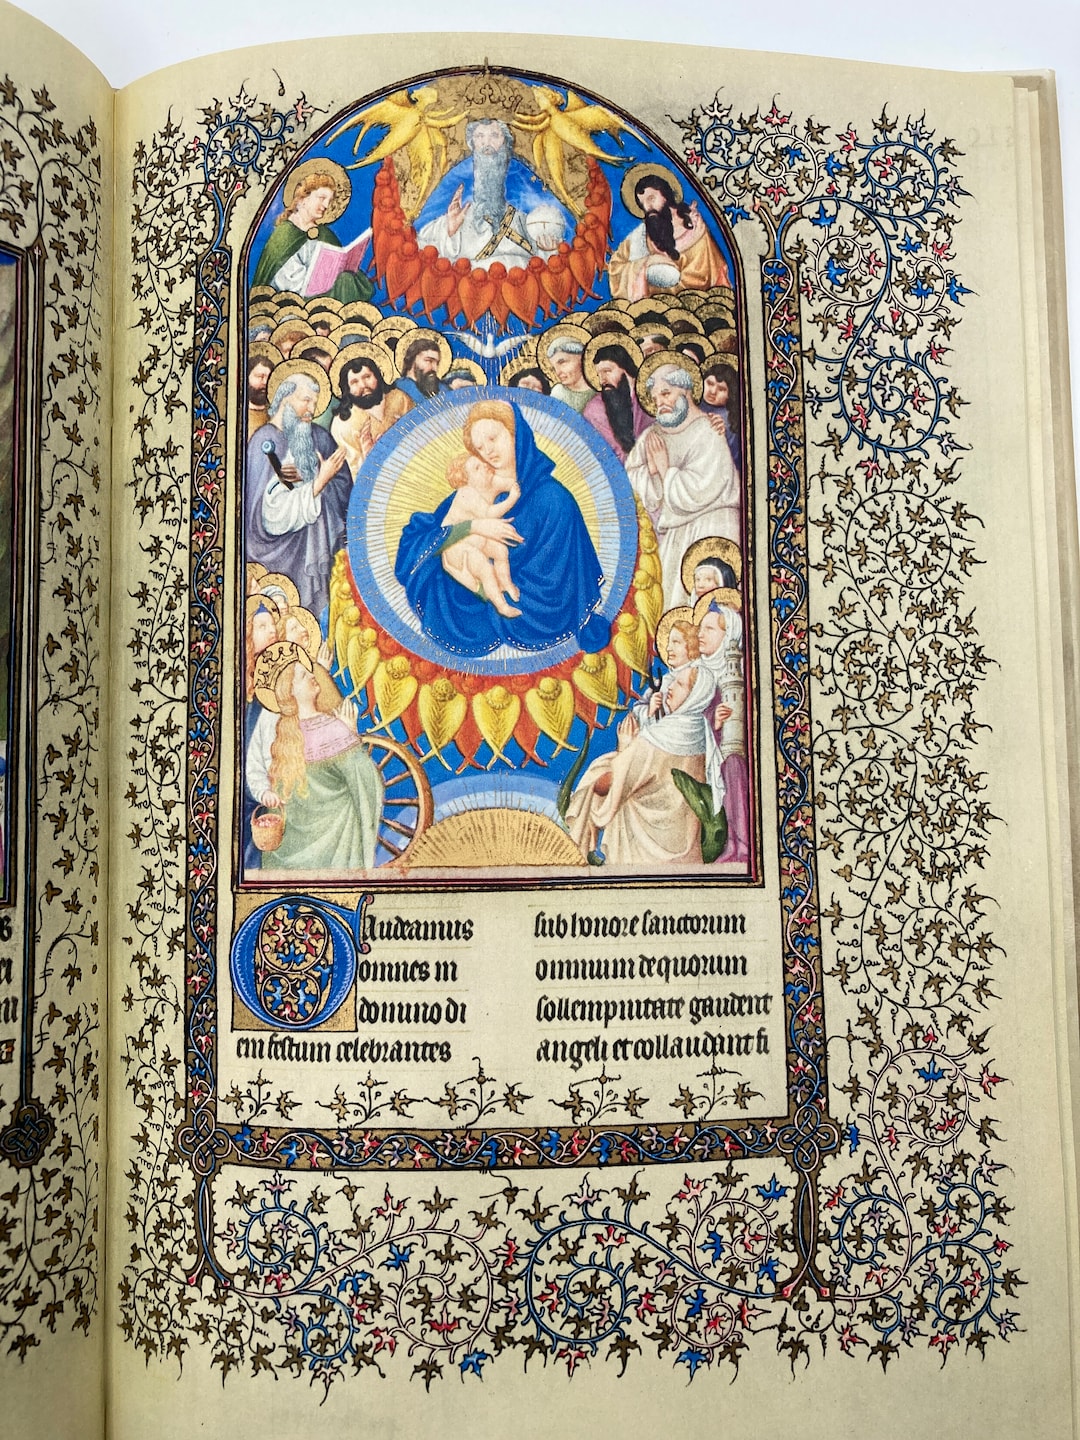 Gaudeamus
omnes in
domino di
em festum celebrantes
sub honore sanctorum
omnium de quorum
sollempnitate gaudent
angeli et collaudant fi